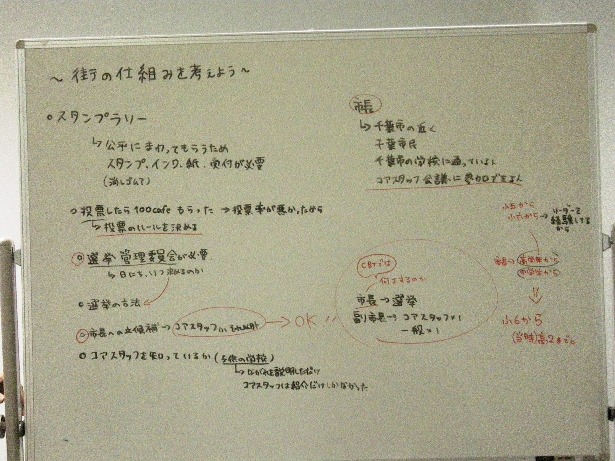 ～街の仕組みを考えよう～
○スタンプラリー
↳公平にまわってもらうため
スタンプ、インク、紙、受付が必要
(消しゴムで)
○投票したら100cafeもらった→投票率が悪かったから
↳投票のルールを決める
◎選挙管理委員会が必要
↳日にち、いつ決めるのか
○選挙の方法
◎市長への立候補→コアスタッフ
→OK
○コアスタッフを知っているか(子供の学校)
↳ながれを説明しただけ
コアスタッフは紹介だけしかなかった
市長
↳千葉市の近く
千葉市民
千葉市の学校に通っている人
コアスタッフ会議に参加できる人
CBTでは
何才にするのか
市長→選挙
副市長→コアスタッフ×1
一般×1
小5から
小6から→リーダーを
経験してる
から
高学年から
中学生から
⇓
小6から
高2まで